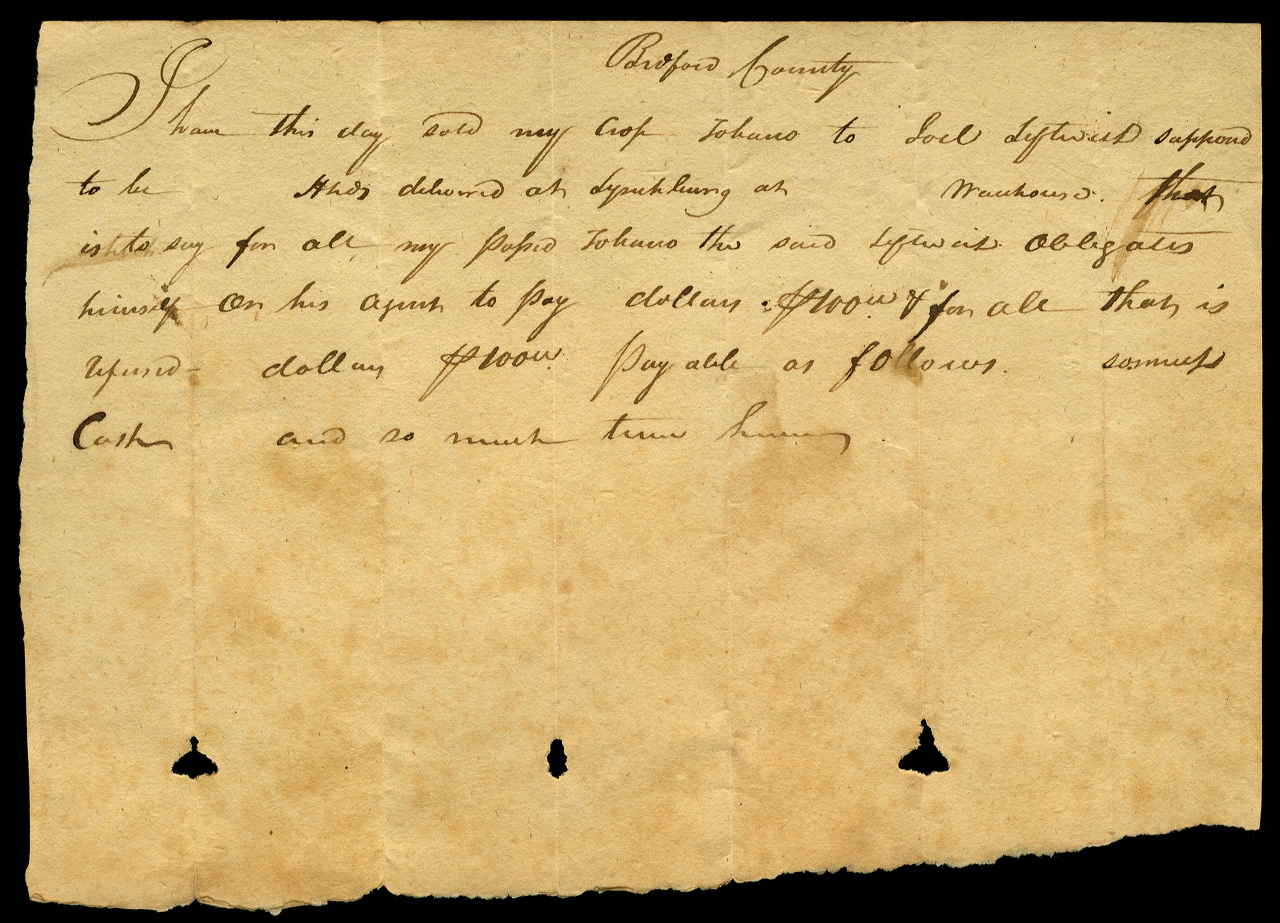 Bedford County
I have this day sold my Crop Tobacco to Joel Leftwich supposed
to be Hhds delivered at Lynchburg at Warehouse. that
is to say for all my passed Tobacco the said Leftwich Obligates
himself Or his Agent to pay dollars $100 & for all that is
refused dollars $100 Payable as follows. so much
Cash and so much